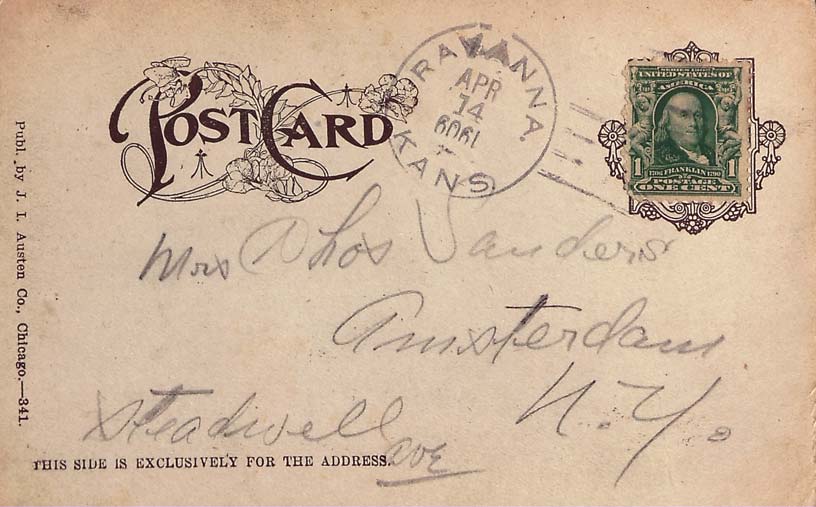 POST CARD
RAVANNA.
APR
14
1909
KANS.
SERIES 1902
UNITED STATES OF
AMERICA
1 1706 FRANKLIN 1790 1
POSTAGE
ONE CENT
Mrs Thos Sanders
Amsterdam
N.Y.
Steadwell
ave
THIS SIDE IS EXCLUSIVELY FOR THE ADDRESS.
Publ. by J. I. Austen Co., Chicago.—341.